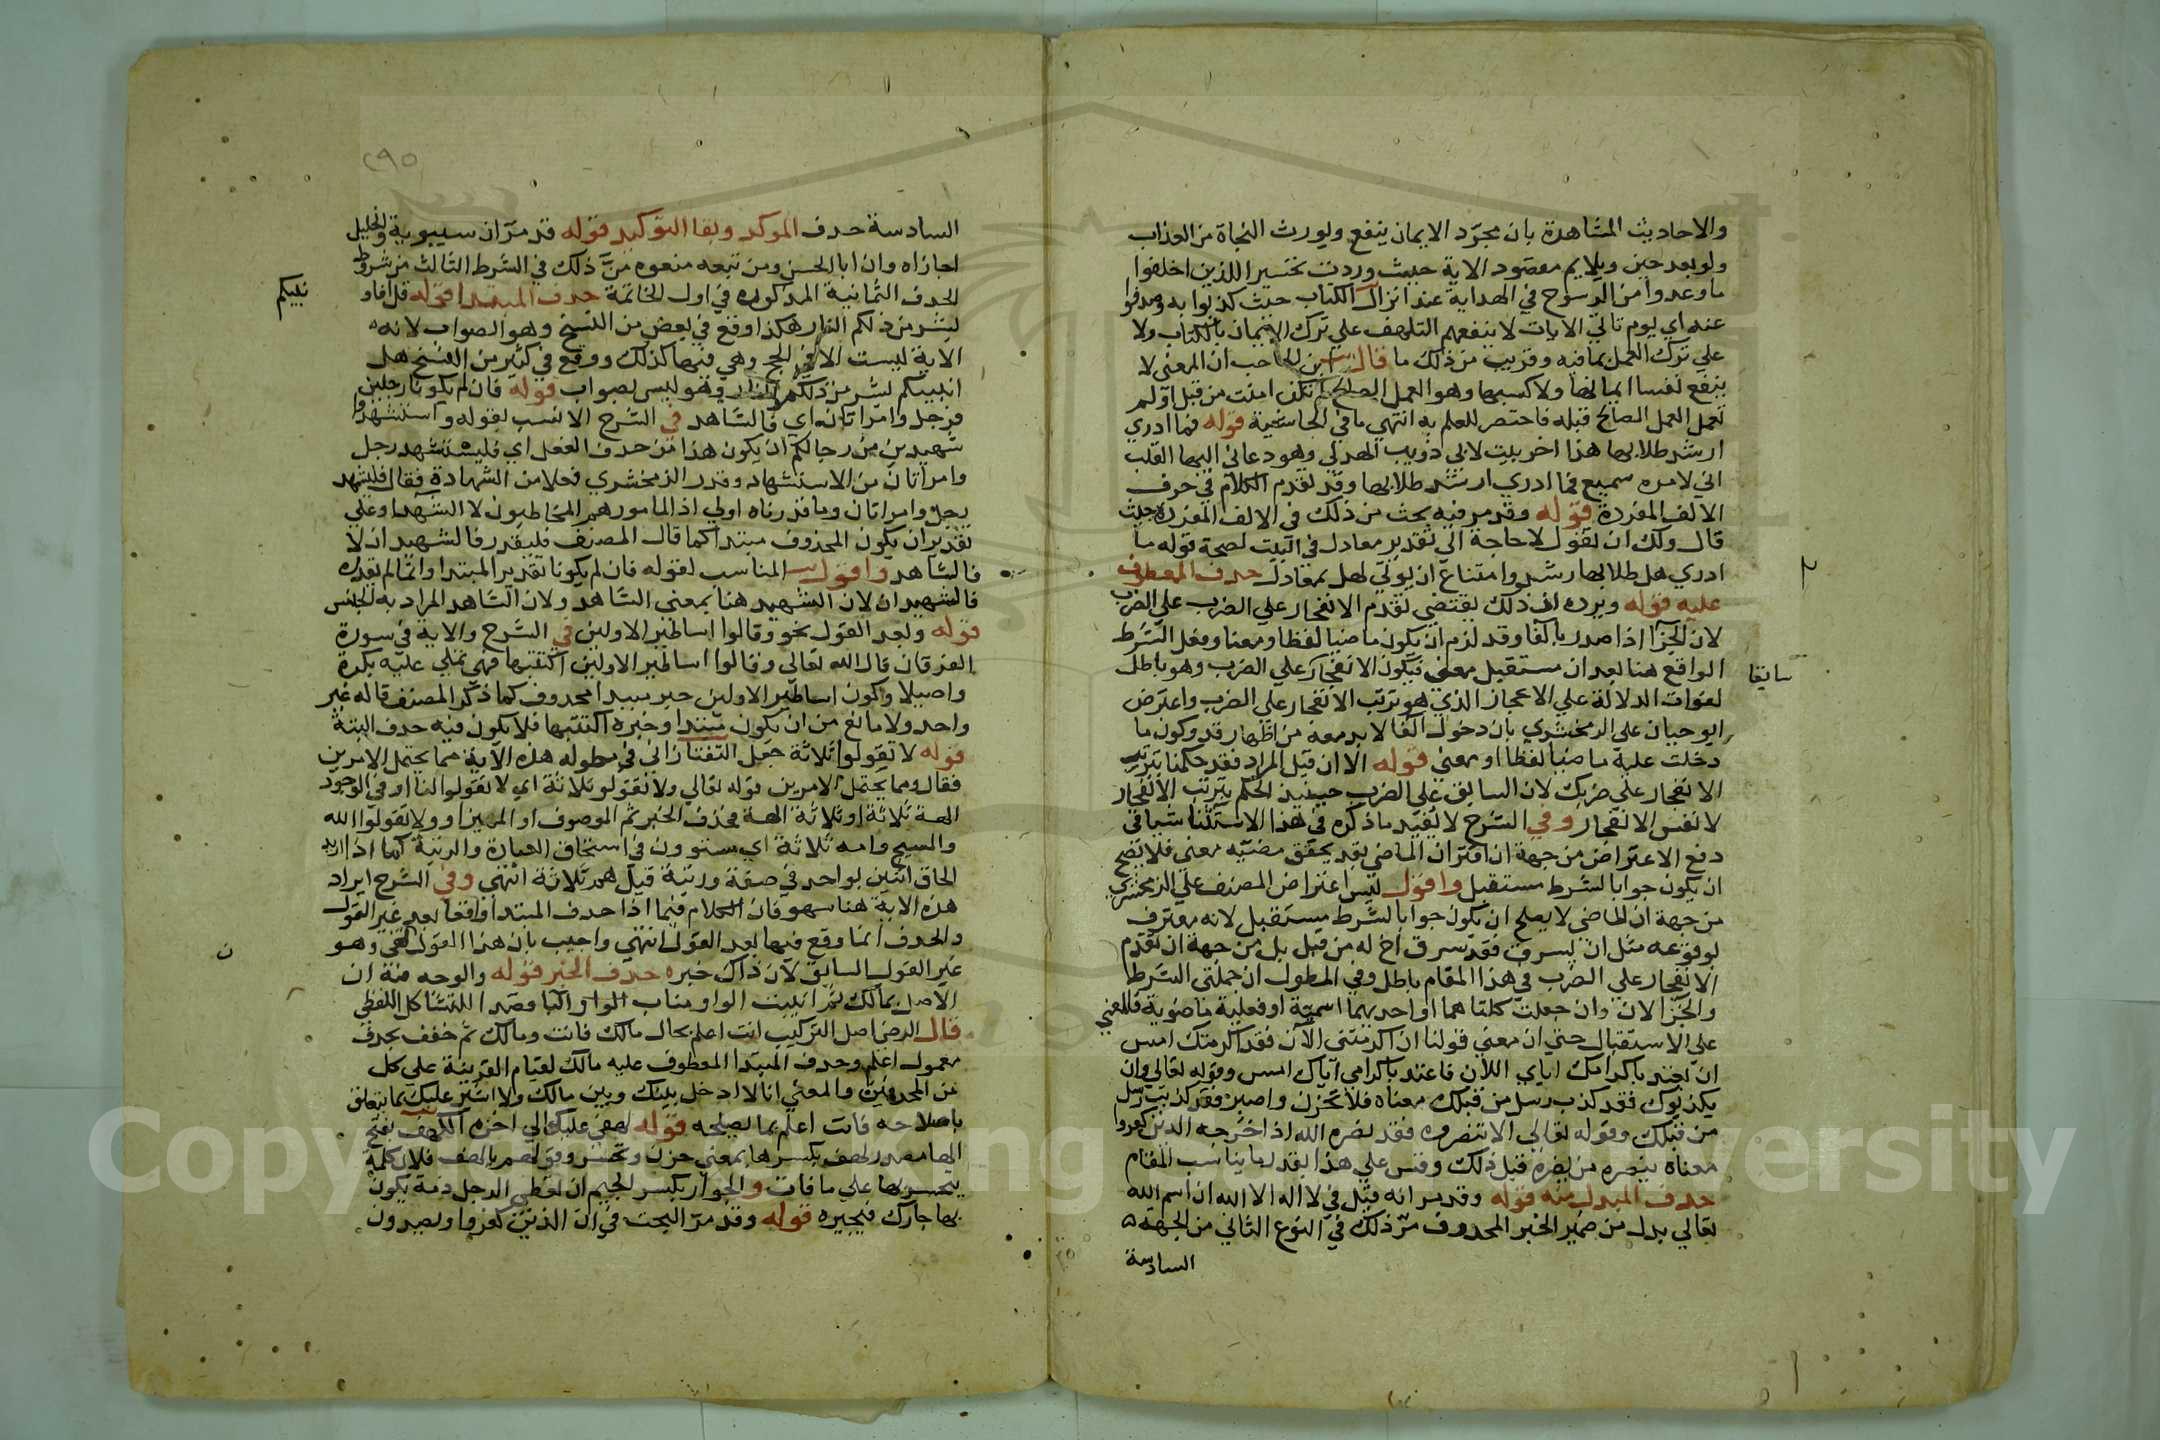 والاحاديث المشاهدة بان مجرد الايمان ينفع ويورث النجاة من العذاب
ولو بعد حين ويلايم مقصود الاية حيث وردت تحسير اللذين اخلفوا
ما وعدوا من الرسوخ في الهداية عند انزال الكتاب حيث كذبوا به وصدفوا
عنه اي يوم تاتي الايات لا ينفعهم التلهف علي ترك الايمان بالكتاب ولا
علي ترك العمل بما فيه وقريب من ذلك ما قال ابن الحاجب ان المعني لا
ينفع نفسا ايمانها ولا كسبها وهو العمل الصالح لم تكن امنت من قبل او لم
تعمل العمل الصالح قبله فاختصر للعلم به انتهي ما في الحاشية قوله فما ادري
ارشد طلابها هذا اخر بيت لابي ذويب الهذلي وهو دعاني اليها القلب
اني لامره سميع فما ادري ارشد طلابها وقد تقدم الكلام في حرف
الالف المفردة قوله وقد مر فيه بحث من ذلك في الالف المفردة حيث
قال ولك ان تقول لا حاجة الي تقدير معادل في البيت لصحة قوله ما
ادري هل طلابها رشد وامتناع ان يوتي لهل بمعادل حذف المعطوف
عليه قوله ويرده ان ذلك يقتضي تقدم الانفجار علي الضرب علي الضرب
لان الجزا اذا صدر بالفا وقد لزم ان يكون ماضيا لفظا ومعنا وفعل الشرط
الواقع هنا بعد ان مستقبل معني فيكون الانفجار علي الضرب وهو باطل
سابقا
لفوات الدلالة علي الاعجاز الذي هو ترتب الانفجار علي الضرب واعترض
ابو حيان علي الزمخشري بان دخول الفا لا بد معه من اظهار قد وكون ما
دخلت عليه ماضيا لفظا او معني قوله الا ان قيل المراد فقد حكمنا بترتب
الانفجار علي ضربك لان السابق علي الضرب حينيذ الحكم بترتب الانفجار
لا نفس الانفجار وفي الشرح لا يفيد ما ذكره في هذا الاستثنا شيا في
دفع الاعتراض من جهة ان اقتران الماضي بقد يحقق مضيه معني فلا يصح
ان يكون جوابا لشرط مستقبل واقول ليس اعتراض المصنف علي الزمخشري
من جهة ان الماضي لا يصلح ان يكون جوابا لشرط مستقبل لانه معترف
بوقوعه مثل ان يسرق فقد سرق اخ له من قبل بل من جهة ان تقدم
الانفجار علي الضرب في هذا المقام باطل وفي المطول ان جملتي الشرط
والجزا الان وان جعلت كلتاهما او احديهما اسمية او فعلية ماضوية فالمعني
علي الاستقبال حتي ان معني قولنا ان اكرمتني الان فقد اكرمتك امس
ان تعتد باكرامك اياي اللان فاعتد باكرامي اياك امس وقوله تعالي وان
يكذبوك فقد كذب رسل من قبلك معناه فلا تحزن واصبر فقد كذبت رسل
من قبلك وقوله تعالي الا تنصروه فقد نصره الله اذ اخرجه الذين كفروا
معناه ينصره من نصره قبل ذلك وقس علي هذا بقدر ما يناسب المقام
حذف المبدل منه قوله وقد مر انه قيل في لا اله الا الله ان اسم الله
تعالي بدل من ضمير الخبر المحذوف مر ذلك في النوع الثاني من الجهة
السادسة
٢٩٥
السادسة حذف الموكد وبقا التوكيد قوله قد مر ان سيبويه والخليل
اجازاه وان ابا الحسن ومن تبعه منعوه مر ذلك في الشرط الثالث من شروط
الحذف الثمانية المذكوره في اول الخاتمة حذف المبتدا قوله قل افا
نبيكم
بشر من ذلكم النار هكذا وقع في بعض من النسخ وهو الصواب لانه
الاية ليست الا في الحج وهي فيها كذلك ووقع في كثير من النسخ هل
انبيكم بشر من ذلكم النار وهو ليس بصواب قوله فان لم يكونا رجلين
فرجل وامراتان اي فالشاهد في الشرح الانسب لقوله واستشهدوا
شهيدين من رجالكم ان يكون هذا من حذف الفعل اي فليستشهد رجل
وامراتان من الاستشهاد وقدر الزمخشري فعلا من الشهادة فقال فليشهد
رجل وامراتان وما قدرناه اولي اذ المامور هم المخاطبون لا الشهدا وعلي
تقدير ان يكون المحذوف مبتدا كما قال المصنف فليقدر فالشهيدان لا
فالشاهد واقول المناسب لقوله فان لم يكونا تقدير المبتدا وانما لم يقدره
فالشهيدان لان الشهيد هنا بمعني الشاهد ولان الشاهد المراد به الجنس
قوله وبعد القول نحو وقالوا اساطير الاولين في الشرح والاية في سورة
الفرقان قال الله تعالي وقالوا اساطير الاولين اكتتبها فهي تملي عليه بكرة
واصيلا وكون اساطير الاولين خبر مبتدا محذوف كما ذكر المصنف قاله غير
واحد ولا مانع من ان يكون مبتدا وخبره اكتتبها فلا يكون فيه حذف البتة
قوله لا تقولوا ثلاثة جعل التفتازاني في مطوله هذه الاية مما يحتمل الامرين
فقال ومما يحتمل الامرين قوله تعالي ولا تقولو ثلاثة اي لا تقولوا لنا او في الوجود
الهة ثلاثة او ثلاثة الهة فحذف الخبر ثم الموصوف او المميز او ولا تقولوا الله
والمسيح وامه ثلاثة اي مستوون في استحقاق العبادة والرتبة كما اذا اريد
الحاق اثنين بواحد في صفة ورتبة قيل هم ثلاثة انتهي وفي الشرح ايراد
هذه الاية هنا سهو فان الكلام فيما اذا حذف المبتدا واقعا بعد غير القول
والحذف انما وقع فيها بعد القول انتهي واجيب بان هذا القول نفي وهو
ن
غير القول السابق لان ذاك خبره حذف الخبر قوله والوجه فيه ان
الاصل بمالك ثم انيبت الواو مناب البا قصدا للتشاكل اللفظي
قال الرضي اصل التركيب انت اعلم بحال مالك فانت ومالك ثم خفف بحذف
معمول اعلم وحذف المبتدا المعطوف عليه مالك لقيام القرينة علي كل
من المحذوفين والمعني انا لا ادخل بينك وبين مالك ولا اشير عليك بما يتعلق
باصلاحه فانت اعلم بما يصلحه قوله لهفي عليك الي اخره اللهف بفتح
الها مصدر لهف بكسرها بمعني حزن وتحسر وقولهم يا لهف فلان كلمة
يتحسر بها علي ما فات والجوار بكسر الجيم ان تعطي الرجل ذمة يكون
بها جارك فتجيره قوله وقد مر البحث في ان الذين كفروا ويصدون
Copyright © King Saud University